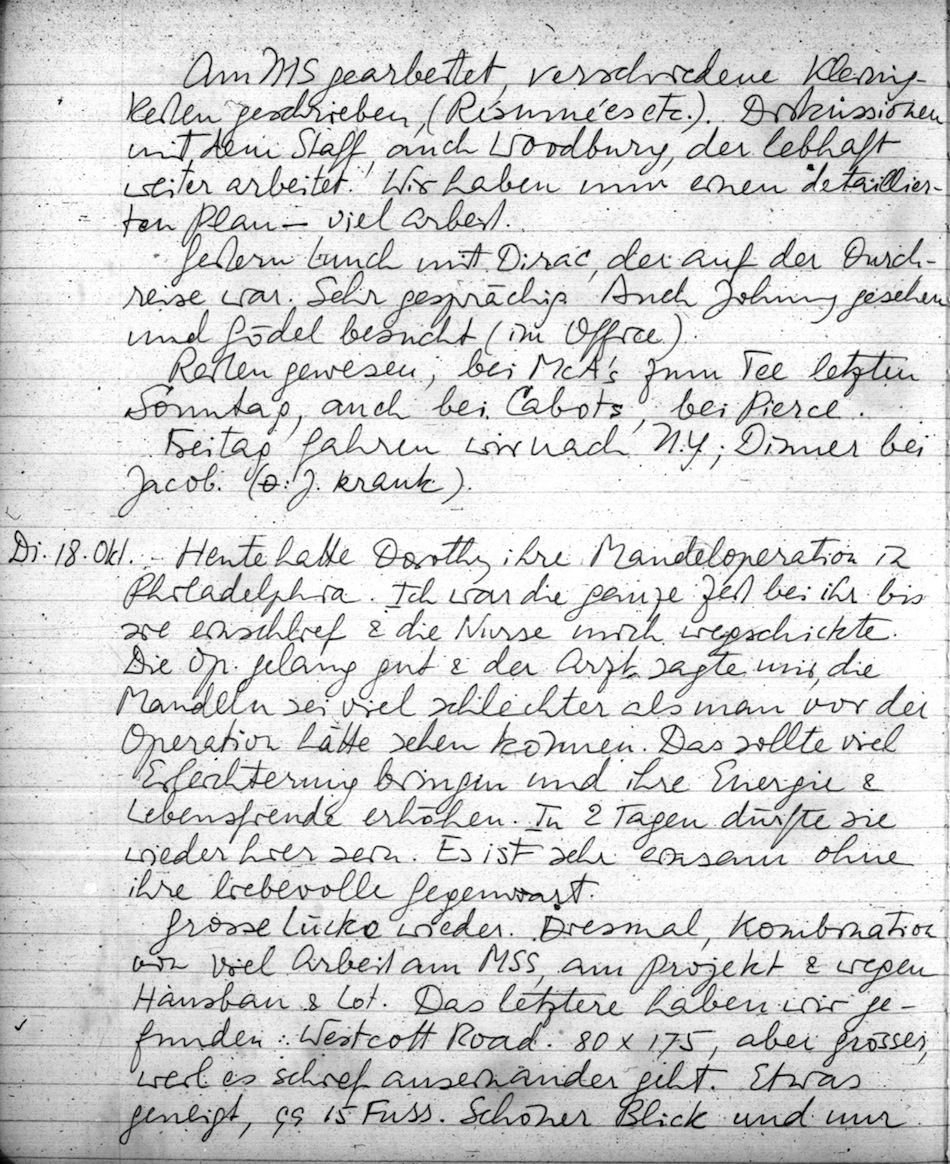 Am MS gearbeitet, verschiedene Kleinig-
keiten geschrieben, (Résumées etc.). Diskussionen
mit dem Staff, auch Woodbury, der lebhaft
weiter arbeitet. Wir haben nun einen detaillier-
ten Plan – viel Arbeit.
Gestern Lunch mit Dirac, der auf der Durch-
reise war. Sehr gesprächig. Auch Johnny gesehen
und Gödel besucht (im Office).
Reiten gewesen, bei McA's zum Tee letzten
Sonntag, auch bei Cabots, bei Pierce.
Freitag fahren wir nach N.Y.; Dinner bei
Jacob. (J. krank).
Di. 18. Okt. – Heute hatte Dorothy ihre Mandeloperation in
Philadelphia. Ich war die ganze Zeit bei ihr bis
sie einschlief & die Nurse mich wegschickte.
Die Op. gelang gut & der Arzt sagte mir, die
Mandeln sei viel schlechter als man vor der
Operation hätte sehen können. Das sollte viel
Erleichterung bringen und ihre Energie &
Lebensfreude erhöhen. In 2 Tagen dürfte sie
wieder hier sein. Es ist sehr einsam ohne
ihre liebevolle Gegenwart.
Grosse Lücke wieder. Diesmal, Kombination
von viel Arbeit am MSS, am Projekt & wegen
Hausbau & Lot. Das letztere haben wir ge-
funden: Westcott Road. 80 x 175, aber grösser,
weil es schief auseinander geht. Etwas
geneigt, ca 15 Fuss. Schöner Blick und nur